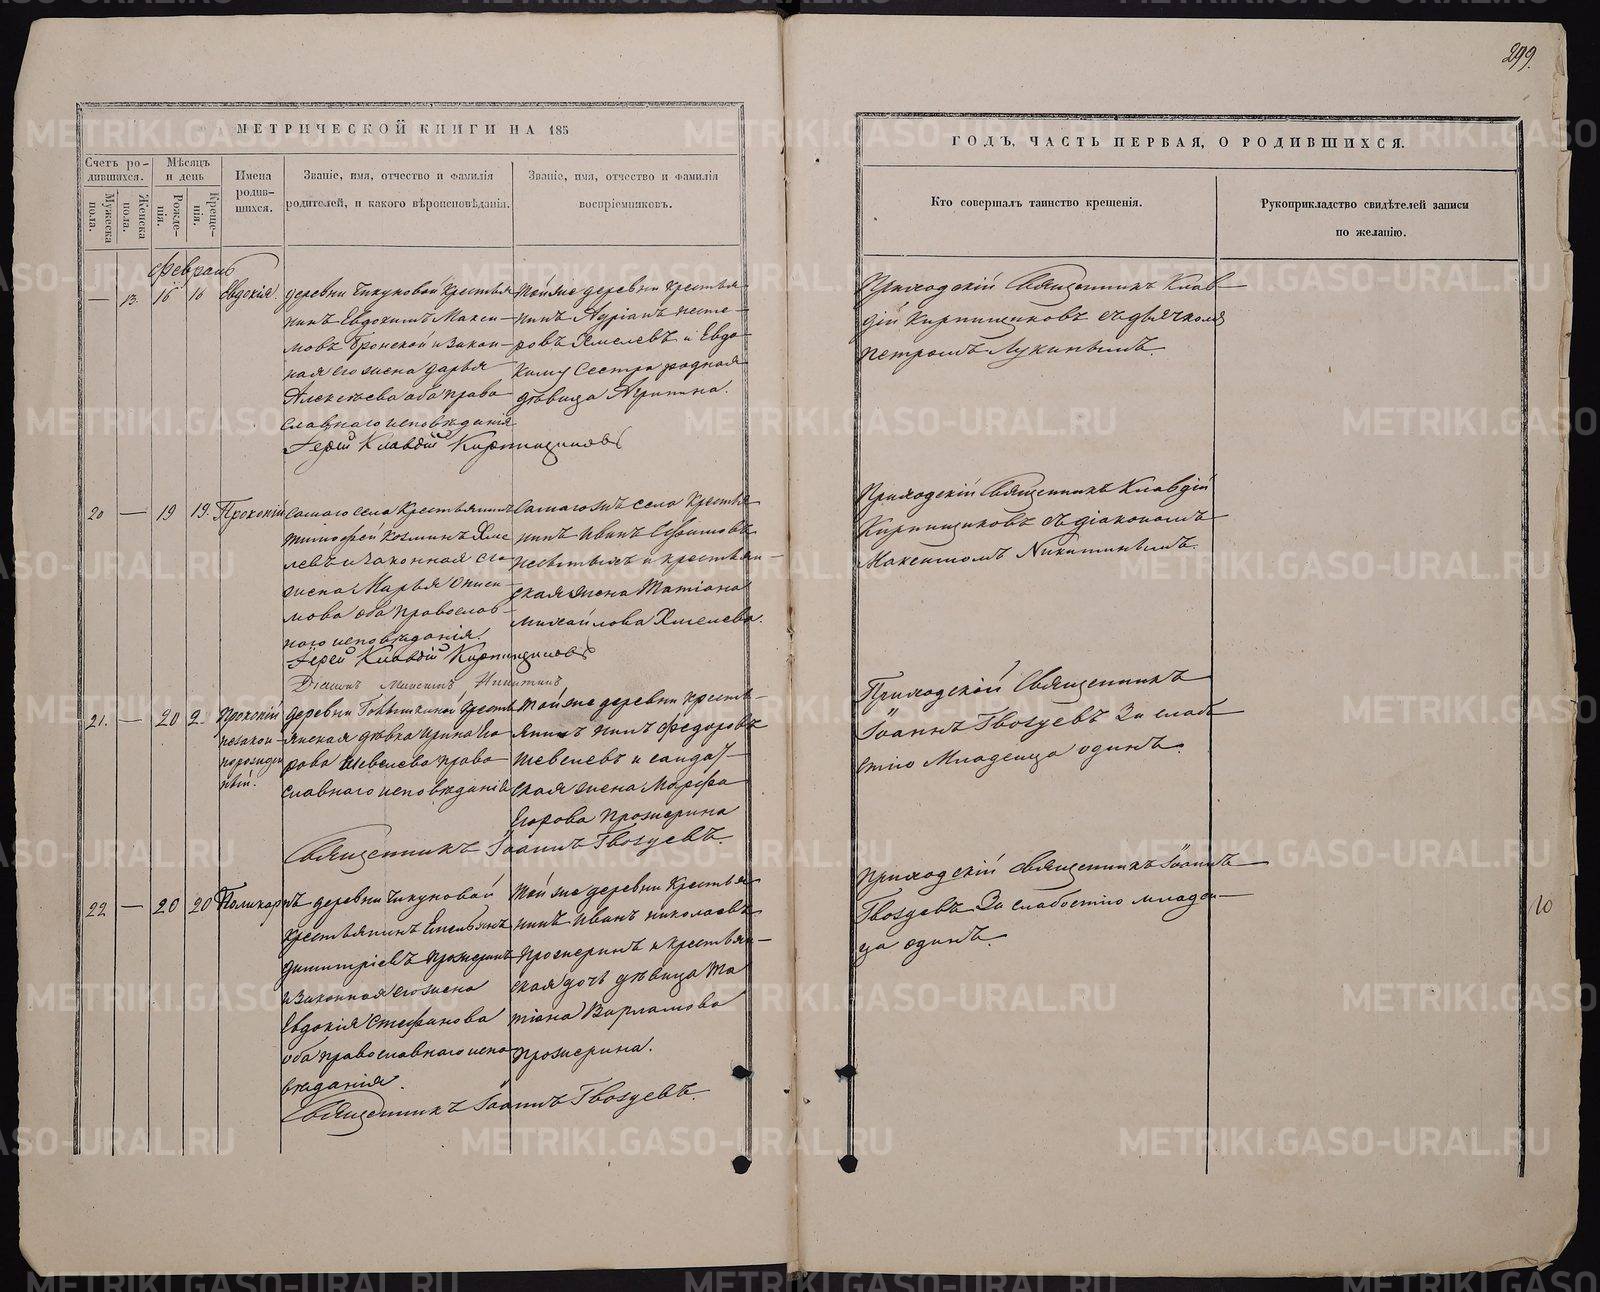 299.
МЕТРИЧЕСКОЙ КНИГИ НА 185
ГОДЪ, ЧАСТЬ ПЕРВАЯ, О РОДИВШИХСЯ.
Счетъ ро-
дившихся.
Мужеска пола.
Женска пола.
Мѣсяцъ и день
Рожде-
нія.
Креще-
нія.
Имена
родив-
шихся.
Званіе, имя, отчество и фамилія
родителей, и какого вѣроисповѣданія.
Званіе, имя, отчество и фамилія
воспріемниковъ.
Кто совершалъ таинство крещенія.
Рукоприкладство свидѣтелей записи
по желанію.
Февраль
— 13. 16 16 Евдокія.
деревни Чикуновой крестья
нинъ Евдокимъ Макси-
мовъ и закон-
ная его жена Дарья
Алексѣева оба право
славнаго исповѣданія
Іерей Клавдій Кирпищиковъ
Той же деревни крестья
нинъ Адріанъ Несте-
ровъ Хмелевъ и Евдо-
киму сестра родная
дѣвица Агрипина.
Приходскій Священникъ Клав
дій Кирпищиковъ съ дьячкомъ
Петромъ Лукинымъ.
20 — 19 19. Прокопій
Самаго села крестьянинъ
Тимофей Козминъ Хме
левъ и законная его
жена Марья Ониси-
мова оба православ-
наго исповѣданія.
Іерей Клавдій Кирпищиковъ
Діаконъ Максимъ Никитинъ
Самаго жъ села крестья
нинъ Иванъ и крестьян-
ская жена Татіана
Михайлова Хмелева.
Приходскій Священникъ Клавдій
Кирпищиковъ съ діакономъ
Максимомъ Никитинымъ.
21. — 20 2 Прокопій
незакон-
норожден
ный.
деревни крестья
янская дѣвка Ирина Его
рова Шевелева право
славнаго исповѣданія
Священникъ Іоаннъ Гвоздевъ.
Той же деревни крестья-
янинъ Федоровъ
Шевелевъ и солдат-
ская жена Марфа
Егорова Прожерина
Приходской Священникъ
Іоаннъ Гвоздевъ За слабо
стію младенца одинъ.
22 — 20 20 Поликарпъ
деревни Чикуновой
крестьянинъ Емельянъ
Димитріевъ Прожеринъ
и законная его жена
Евдокія Стефанова
оба православнаго испо
вѣданія.
Священникъ Іоаннъ Гвоздевъ.
Той же деревни крестья
нинъ Иванъ Николаевъ
Прожеринъ и крестьян-
ская дочь дѣвица Та
тіана Варламова
Прожерина.
Приходскій Священникъ Іоаннъ
Гвоздевъ За слабостію младен-
ца одинъ.
10
METRIKI.GASO-URAL.RU